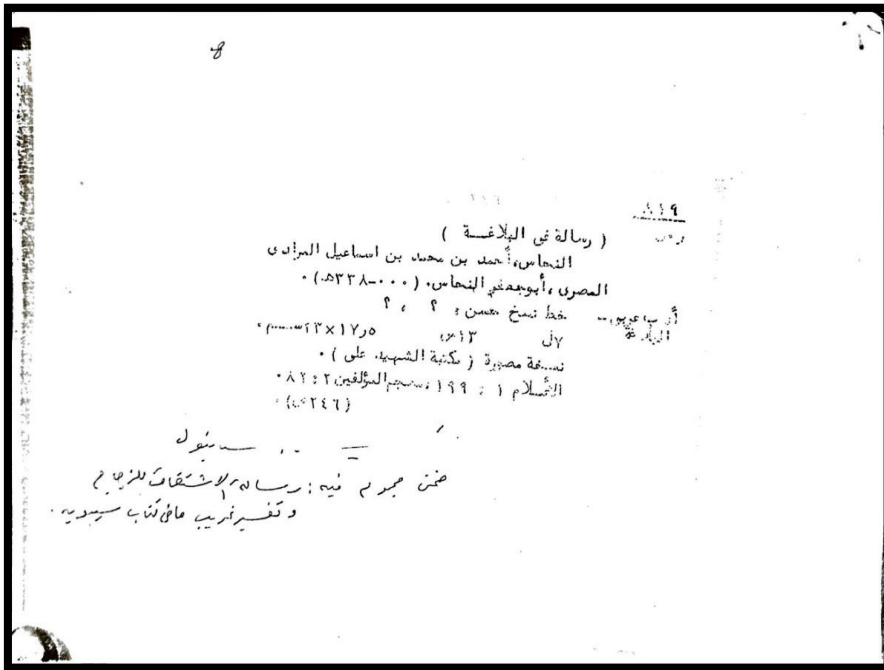 ٨١٩
( رسالة في البلاغـــة )
النحاس، أحمد بن محمد بن اسماعيل المرادى
المصرى ، أبو جعفر النحاس. ( ٠٠٠-٣٣٨هـ) .
أدب عربى - خط نسخ حسن ، ؟ ، ؟
البلاغة ٧ل ١٣س ١٧٫٥×١٣سم،
نسخة مصورة ( مكتبة الشهيد على ) .
الأعلام ١ : ١٩٩ ، معجم المؤلفين ٢ : ٨٢ .
(٢٤٦ص) .
ضمن مجموع فيه : رسالة الاشتقاق للزجاج
و تفسير غريب ما فى كتاب سيبويه .